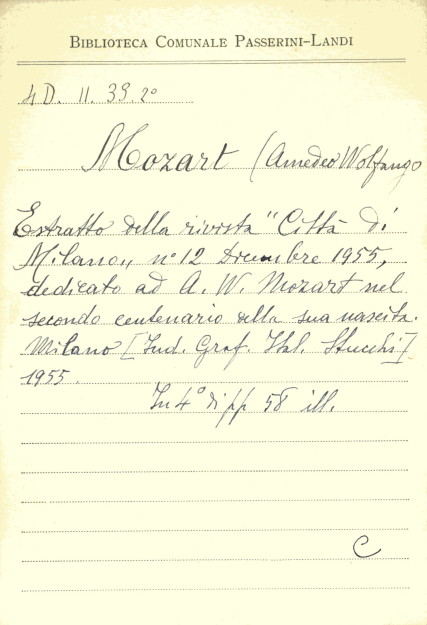 BIBLIOTECA COMUNALE PASSERINI-LANDI
4D. II. 39. 2°
Mozart (Amedeo Wolfango
Estratto della rivista "Città di
Milano,, n° 12 Dicembre 1955,
dedicato ad A. W. Mozart nel
secondo centenario della sua nascita.
Milano [Ind. Graf. Ital. Stucchi]
1955.
In 4° di pp 58 ill.
C